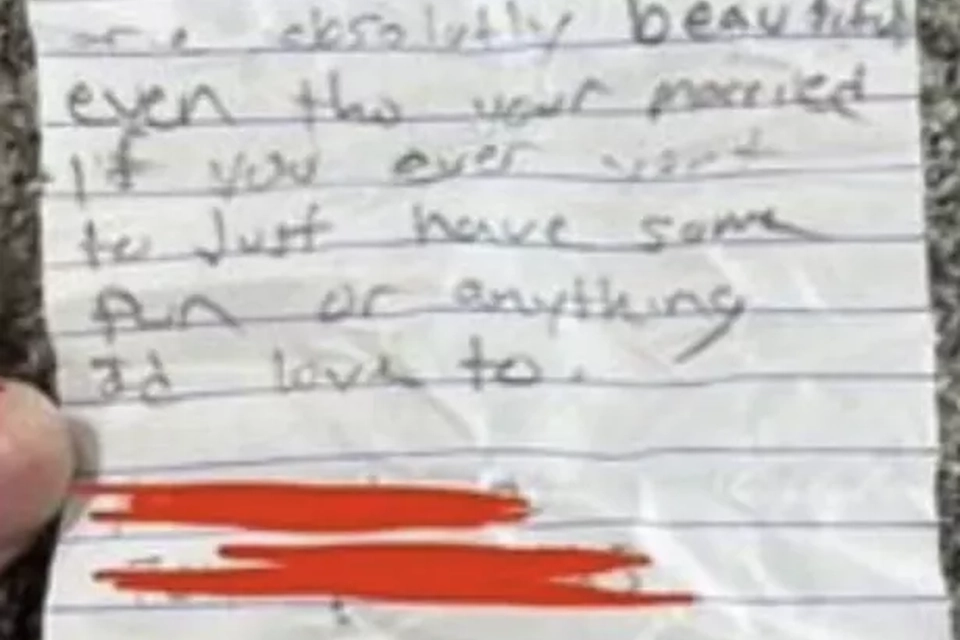 are absolutly beautiful
even tho your married
If you ever want
to Just have some
fun or anything
Id love to.